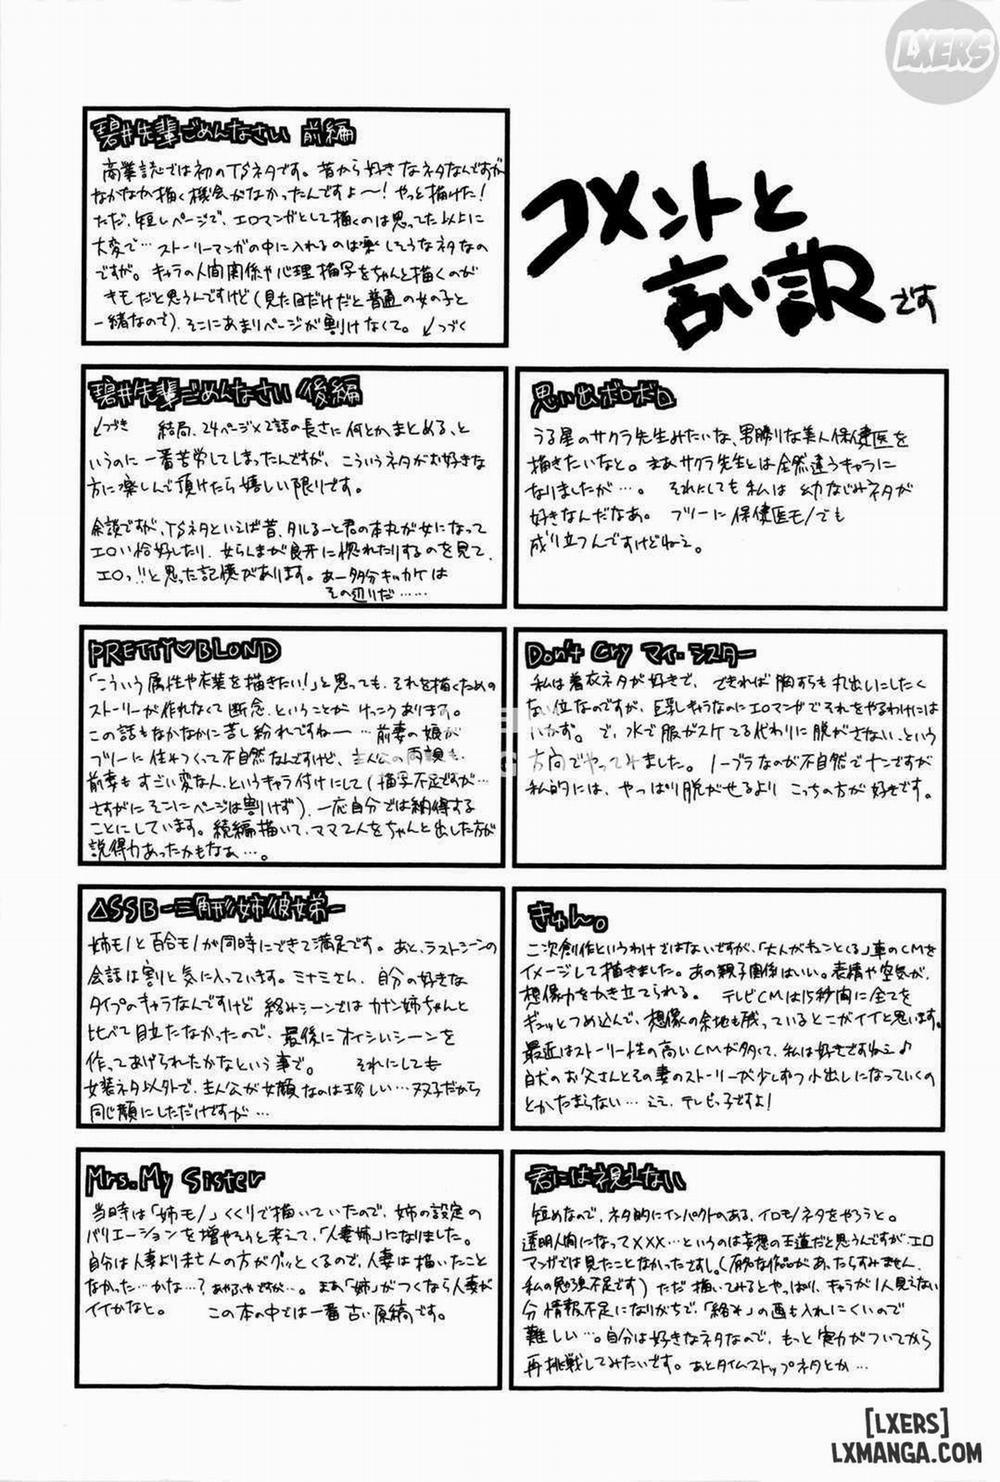 LXERS
コメントと
言い訳です
碧井先輩ごめんなさい 前編
商業誌では初のTSネタです。昔から好きなネタなんですが
なかなか描く機会がなかったんですよ〜!やっと描けた!
ただ、短いページで、エロマンガとして描くのは思ってた以上に
大変で…ストーリーマンガの中に入れるのは楽しそうなネタなの
ですが。キャラの人間関係や心理描写をちゃんと描くのが
キモだと思うんですけど(見た目だけだと普通の女の子と
一緒なので)、そこにあまりページが割けなくて。↙つづく
碧井先輩ごめんなさい 後編
↘つづき 結局、24ページ×2話の長さに何とかまとめる、と
いうのに一番苦労してしまったんですが、こういうネタがお好きな
方に楽しんで頂けたら嬉しい限りです。
余談ですが、TSネタといえば昔、タルるーと君の本丸が女になって
エロい恰好したり、女らんまが良牙に惚れたりするのを見て、
エロっ!!と思った記憶があります。あー多分キッカケは
その辺りだ……
思い出ボロボロ
うる星のサクラ先生みたいな、男勝りな美人保健医を
描きたいなと。まあサクラ先生とは全然違うキャラに
なりましたが…。それにしても私は幼なじみネタが
好きなんだなあ。フツーに保健医モノでも
成り立つんですけどねェ。
PRETTY♡BLOND
「こういう属性や衣装を描きたい!」と思っても、それを描くための
ストーリーが作れなくて断念、ということがけっこうあります。
この話もなかなかに苦し紛れですねー…前妻の娘が
フツーに住みつくって不自然なんですけど、主人公の両親も、
前妻もすごい変な人、というキャラ付けにして(描写不足ですが…
さすがにそこにページは割けず)、一応自分では納得する
ことにしています。続編描いて、ママ2人をちゃんと出した方が
説得力あったかもなあ…。
Don't Cry マイ・シスター
私は着衣ネタが好きで、できれば胸すらも丸出しにしたく
ない位なのですが、巨乳キャラなのにエロマンガでそれをやるわけには
いかず。で、水で服がスケてる代わりに脱がさない、という
方向でやってみました。ノーブラなのが不自然でナンですが
私的には、やっぱり脱がせるよりこっちの方が好きです。
△SSB-三角形姉彼女弟-
姉モノと百合モノが同時にできて満足です。あと、ラストシーンの
会話は割と気に入っています。ミナミさん、自分の好きな
タイプのキャラなんですけど絡みシーンではカナン姉ちゃんと
比べて目立たなかったので、最後にオイシイシーンを
作ってあげられたかなという事で。それにしても
女装ネタ以外で、主人公が女顔なのは珍しい…双子だから
同じ顔にしただけですが…
きゅん。
二次創作というわけではないですが、「大人がキュンとくる」車のCMを
イメージして描きました。あの親子関係はいい。表情や空気が、
想像力をかき立てられる。テレビCMは15秒間に全てを
ギュッとつめ込んで、想像の余地も残っているとこがイイと思います。
最近はストーリー性の高いCMが多くて、私は好きですねェ♪
白犬のお父さんとその妻のストーリーが少しずつ小出しになっていくの
とかたまらない…ええ、テレビっ子ですよ!
Mrs.My Sister
当時は「姉モノ」くくりで描いていたので、姉の設定の
バリエーションを増やそうと考えて、「人妻姉」になりました。
自分は人妻より未亡人の方がグッとくるので、人妻は描いたこと
なかった…かな…?あやふやですが…。まあ「姉」がつくなら人妻が
イイかなと。この本の中では一番古い原稿です。
君には視えない
短めなので、ネタ的にインパクトのある、イロモノネタをやろうと。
透明人間になって×××…というのは妄想の王道だと思うんですが、エロ
マンガでは見たことなかったですし。(有名な作品があったらすみません、
私の勉強不足です)ただ描いてみるとやっぱり、キャラが1人見えない
分情報不足になりがちで、「絡み」の画も入れにくいので
難しい…。自分は好きなネタなので、もっと実力がついてから
再挑戦してみたいです。あとタイムストップネタとか…
[LXERS]
LXMANGA.COM